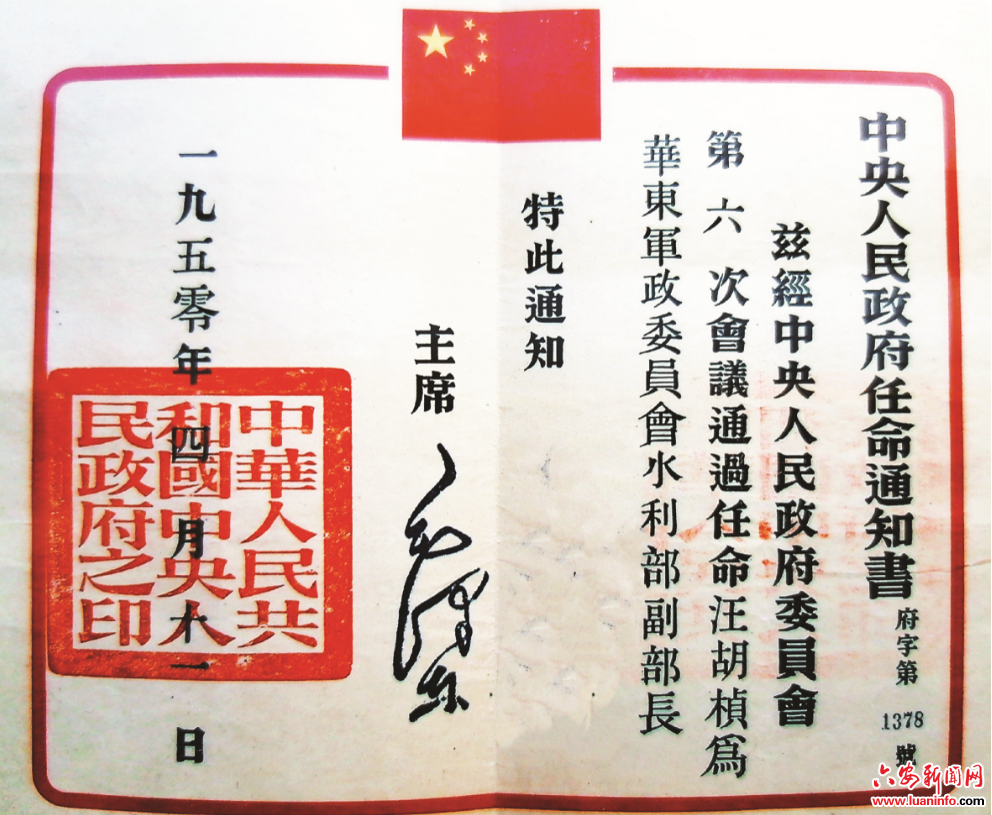 中央人民政府任命通知書
府字第1378號
茲經中央人民政府委員會
第六次會議通過任命汪胡楨爲
華東軍政委員會水利部副部長
特此通知
主席 毛澤东
一九五零年四月十一日
中華人民共
和國中央人
民政府之印
六安新闻网
www.luaninfo.com